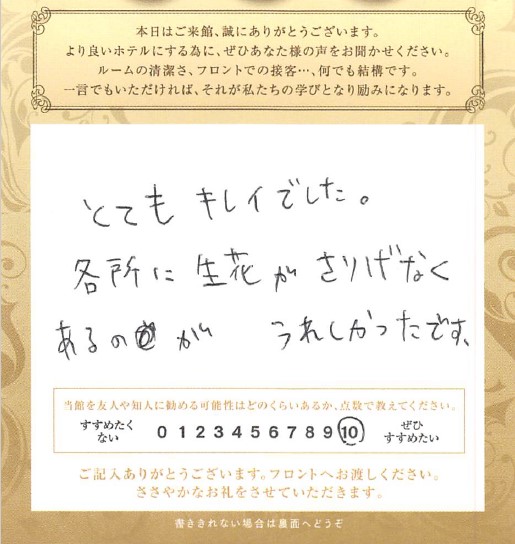 本日はご来館、誠にありがとうございます。
より良いホテルにする為に、ぜひあなた様の声をお聞かせください。
ルームの清潔さ、フロントでの接客…、何でも結構です。
一言でもいただければ、それが私たちの学びとなり励みになります。
とても キレイでした。
各所に 生花が さりげなく
あるのが うれしかったです。
当館を友人や知人に勧める可能性はどのくらいあるか、点数で教えてください。
すすめたくない 0 1 2 3 4 5 6 7 8 9 10 ぜひすすめたい
ご記入ありがとうございます。フロントへお渡しください。
ささやかなお礼をさせていただきます。
書ききれない場合は裏面へどうぞ